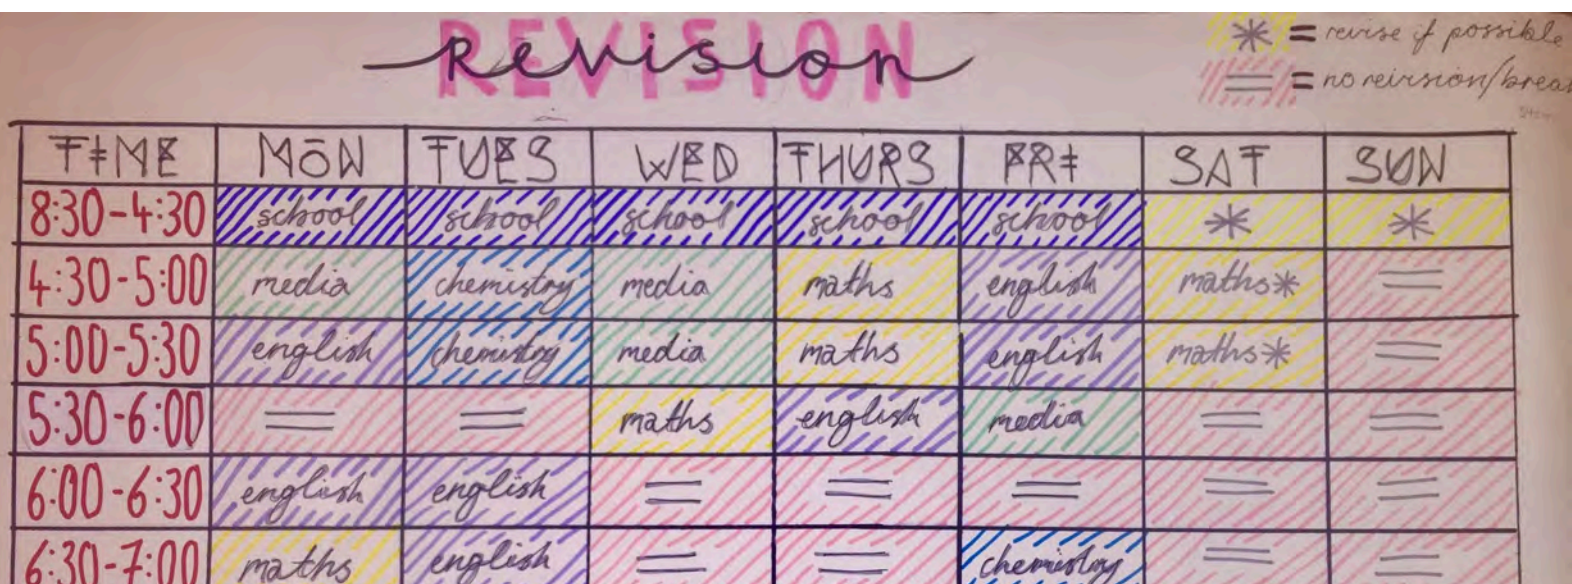 REVISION
Revision
* = revise if possible
= = no reivsion/break
TIME MON TUES WED THURS FRI SAT SUN
8:30-4:30 school school school school school * *
4:30-5:00 media chemistry media maths english maths* =
5:00-5:30 english chemistry media maths english maths* =
5:30-6:00 = = maths english media = =
6:00-6:30 english english = = = = =
6:30-7:00 maths english = = chemistry = =